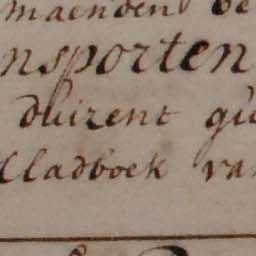 maenden be
nsporten
duizent gu
Cladboek va